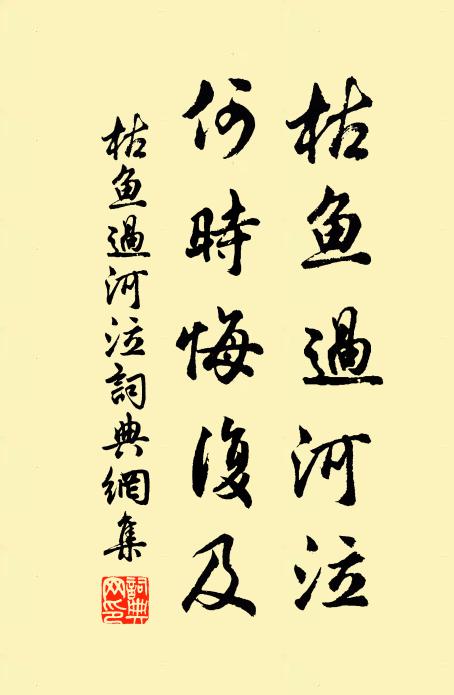 枯鱼過河泣
何時悔復及
枯鱼過河泣詞典網集
詞典網印